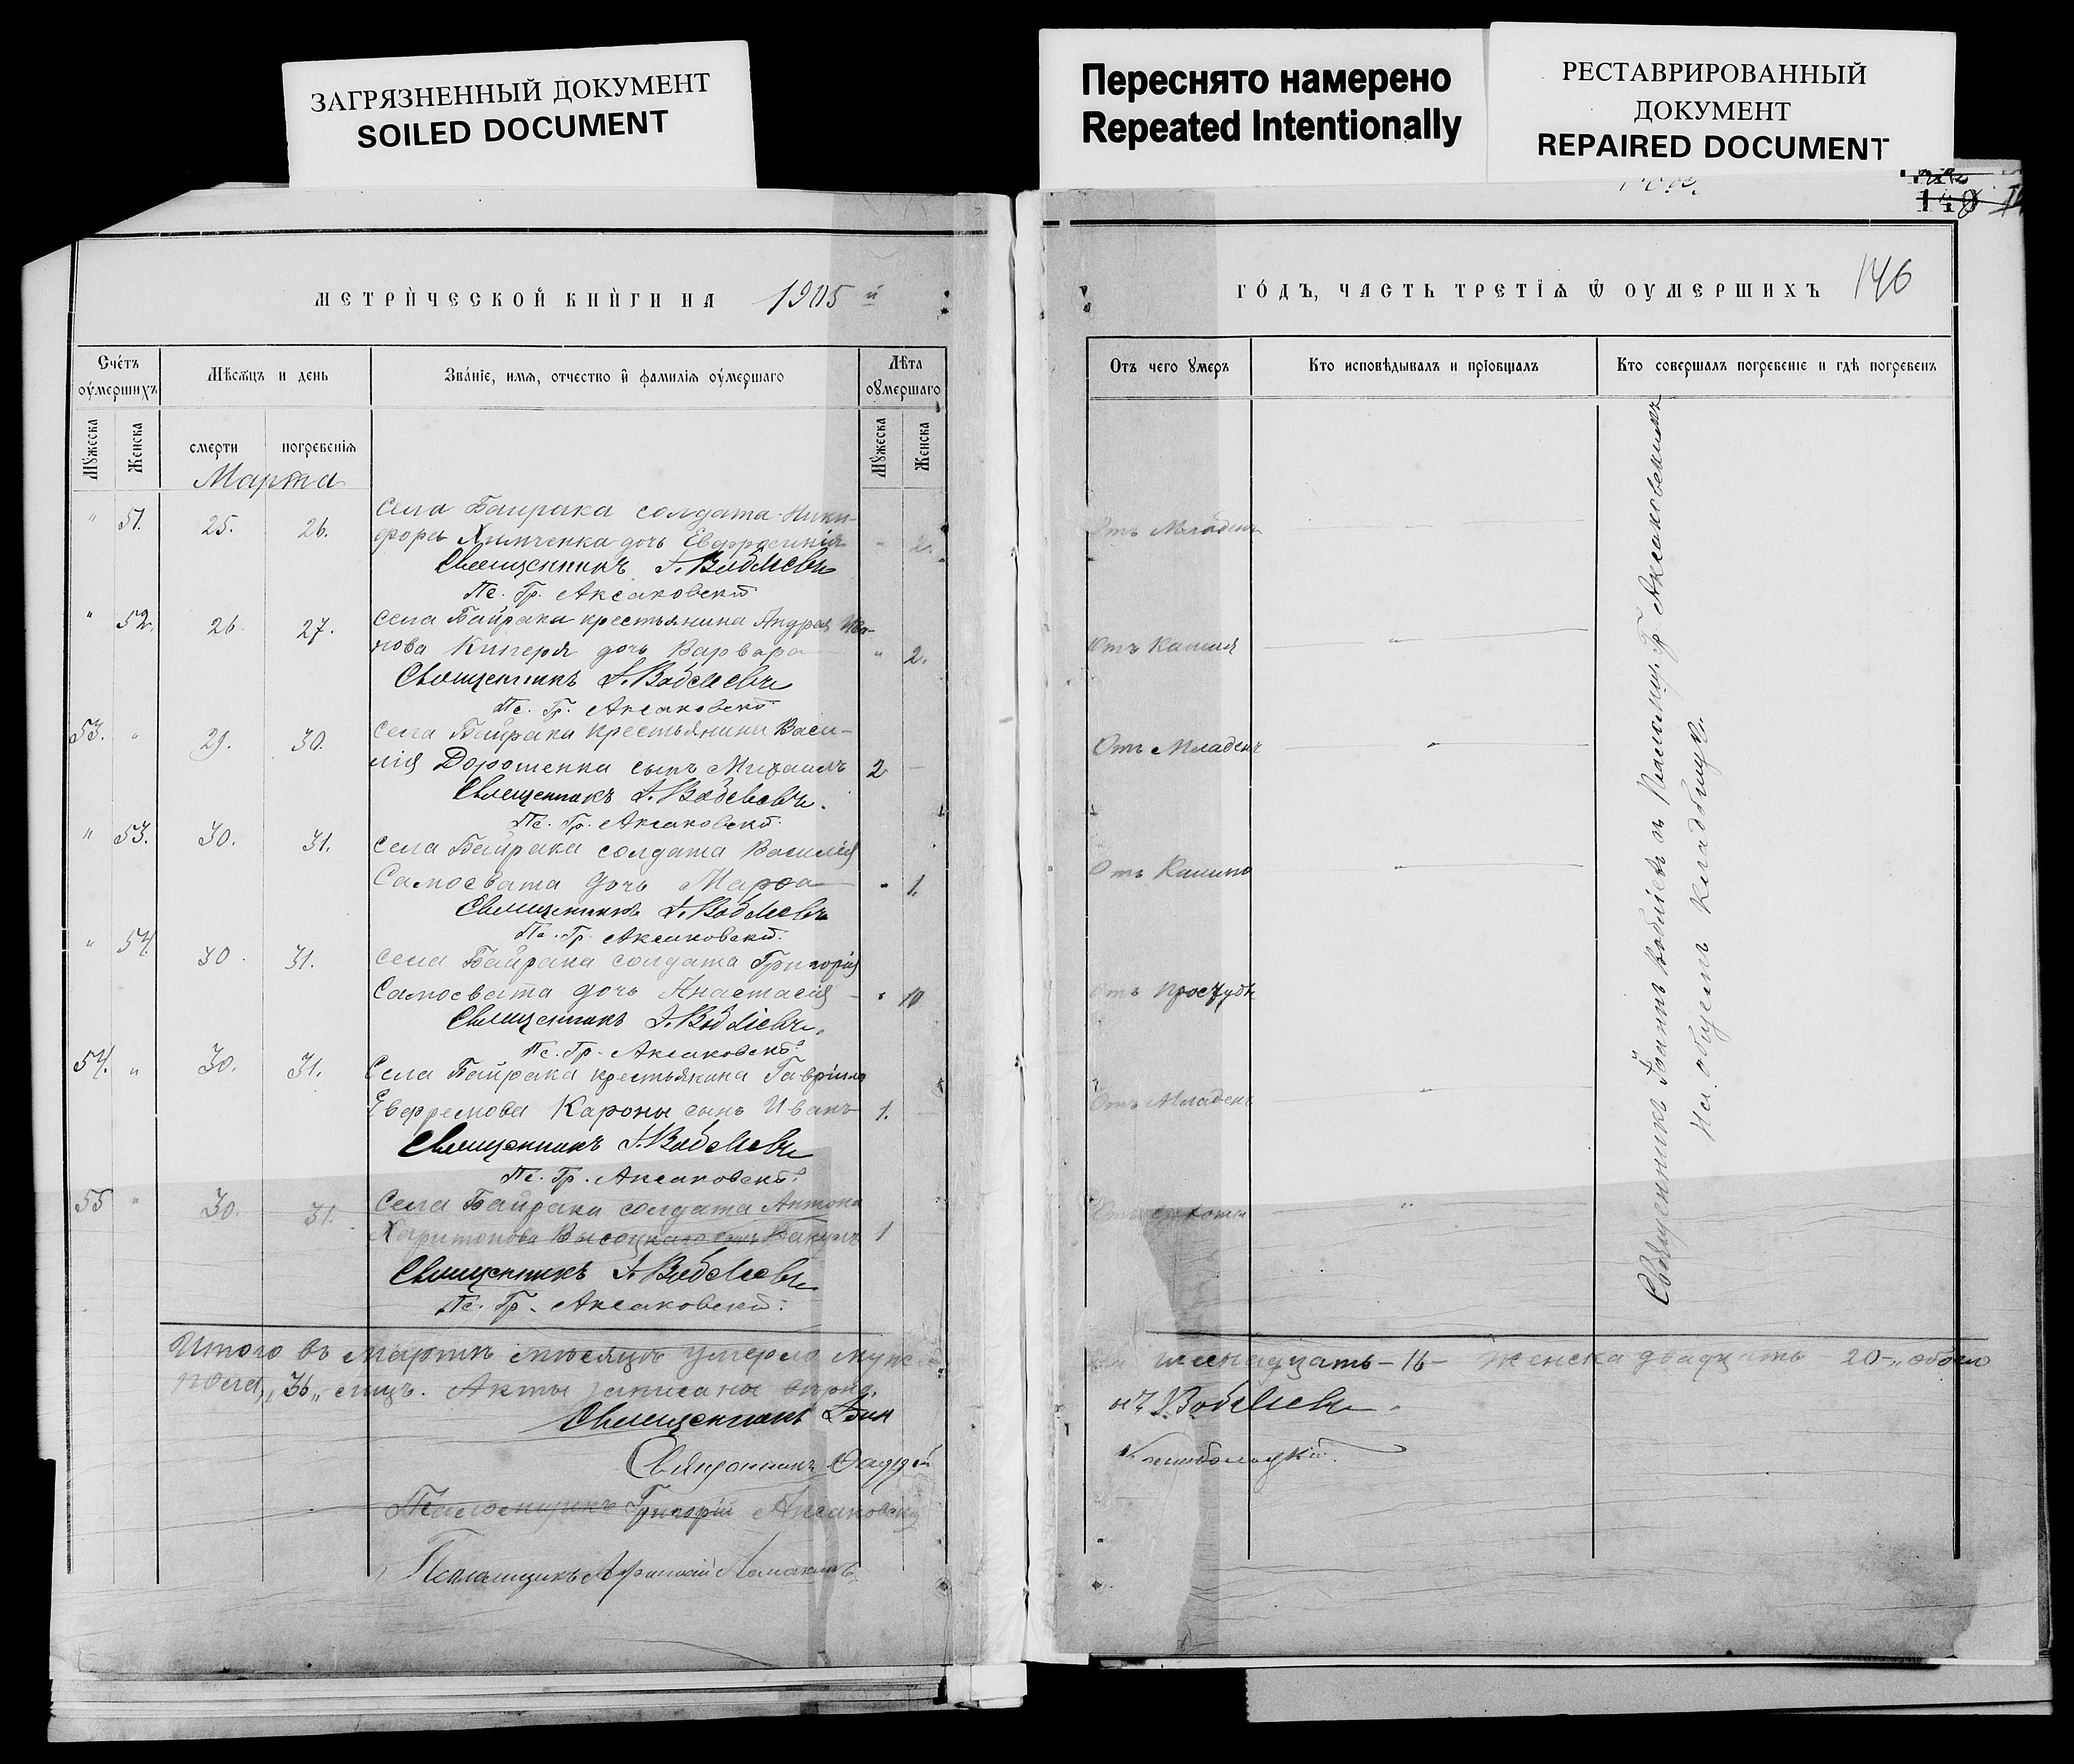 ЗАГРЯЗНЕННЫЙ ДОКУМЕНТ
SOILED DOCUMENT
Переснято намерено
Repeated Intentionally
РЕСТАВРИРОВАННЫЙ
ДОКУМЕНТ
REPAIRED DOCUMENT
МЕТРИЧЕСКОЙ КНИГИ НА 1905 й
Счетъ оумершихъ
Мѣсяцъ и день
Званіе, имя, отчество и фамилія оумершаго
Лѣта оумершаго
Мужеска
Женска
смерти
погребенія
Мужеска
Женска
Марта
" 51. 25. 26. Села Байрака солдата Ники-
фора Химченка дочь Евфросинія " 2.
Священникъ І. Вобліевъ
Пс. Гр. Аксаковскій
" 52. 26 27. Села Байрака крестьянина Андрея Ива-
нова Кигеря дочь Варвара " 2.
Священникъ І. Вобліевъ
Пс. Гр. Аксаковскій
53. " 29. 30. Села Байрака крестьянина Васи-
лія Дорошенка сынъ Михаилъ 2
Священникъ І. Вобліевъ.
Пс. Гр. Аксаковскій
" 53. 30. 31. Села Байрака солдата Василія
Самосвата дочь Марфа " 1.
Священникъ І. Вобліевъ
Пс. Гр. Аксаковскій.
" 54. 30. 31. Села Байрака солдата Григорія
Самосвата дочь Анастасія " 10
Священникъ І. Вобліевъ.
Пс. Гр. Аксаковскій
54. " 30. 31. Села Байрака крестьянина Гавріила
Ефремова Кароны сынъ Иванъ 1.
Священникъ І. Вобліевъ
Пс. Гр. Аксаковскій
55 " 30. 31. Села Байрака солдата Антона
Харитонова Высоцкаго сынъ 1
Священникъ І. Вобліевъ
Пс. Гр. Аксаковскій.
Итого въ Мартѣ мѣсяцѣ умерло мужеска
пола „36„ лицъ. Акты записаны вѣрно.
Священникъ Іоан
Священникъ
Псаломщикъ Григорій Аксаковскій
Псаломщикъ
ГОДЪ, ЧАСТЬ ТРЕТІЯ Ѿ ОУМЕРШИХЪ 146
Отъ чего умеръ
Кто исповѣдывалъ и пріобщалъ
Кто совершалъ погребеніе и гдѣ погребенъ
Отъ Младенч
Отъ Кашля
Отъ Младенч
Отъ Кашля
Отъ простуды
Отъ Младенч
Священникъ Іоаннъ Вобліевъ съ Псаломщ. Гр. Аксаковскимъ
На общемъ кладбищѣ.
шестнадцать - 16 - женска двадцать - 20 -„ обоего
нъ Вобліевъ.